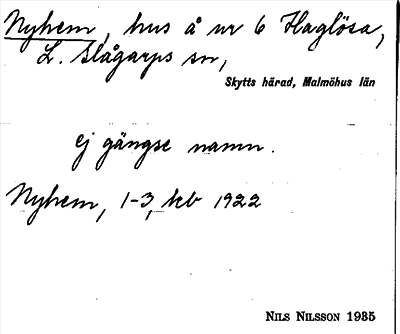 Nyhem, hus å nr 6 Haglösa,
L. Slågarps sn,
Skytts härad, Malmöhus län
ej gängse namn.
Nyhem, 1-3, kb 1922
NILS NILSSON 1935